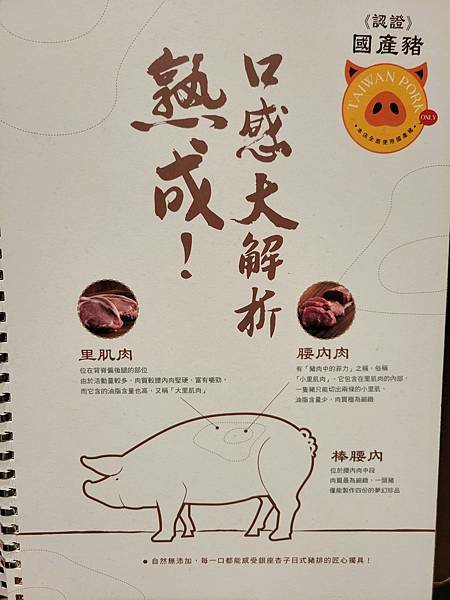 《認證》
國產豬
TAIWAN PORK
ONLY
本店全面使用國產豬
口感大解析
熟成！
里肌肉
位在背脊偏後腿的部位
由於活動量較多，肉質較腰內肉堅硬，富有嚼勁，
而它含的油脂含量也高，又稱「大里肌肉」
腰內肉
有「豬肉中的菲力」之稱，俗稱
「小里肌肉」，它包含在里肌肉的內部，
一隻豬只能切出兩條的小里肌，
油脂含量少，肉質極為細緻
棒腰內
位於腰內肉中段
肉質最為細緻，一頭豬
僅能製作四份的夢幻珍品
● 自然無添加，每一口都能感受銀座杏子日式豬排的匠心獨具！